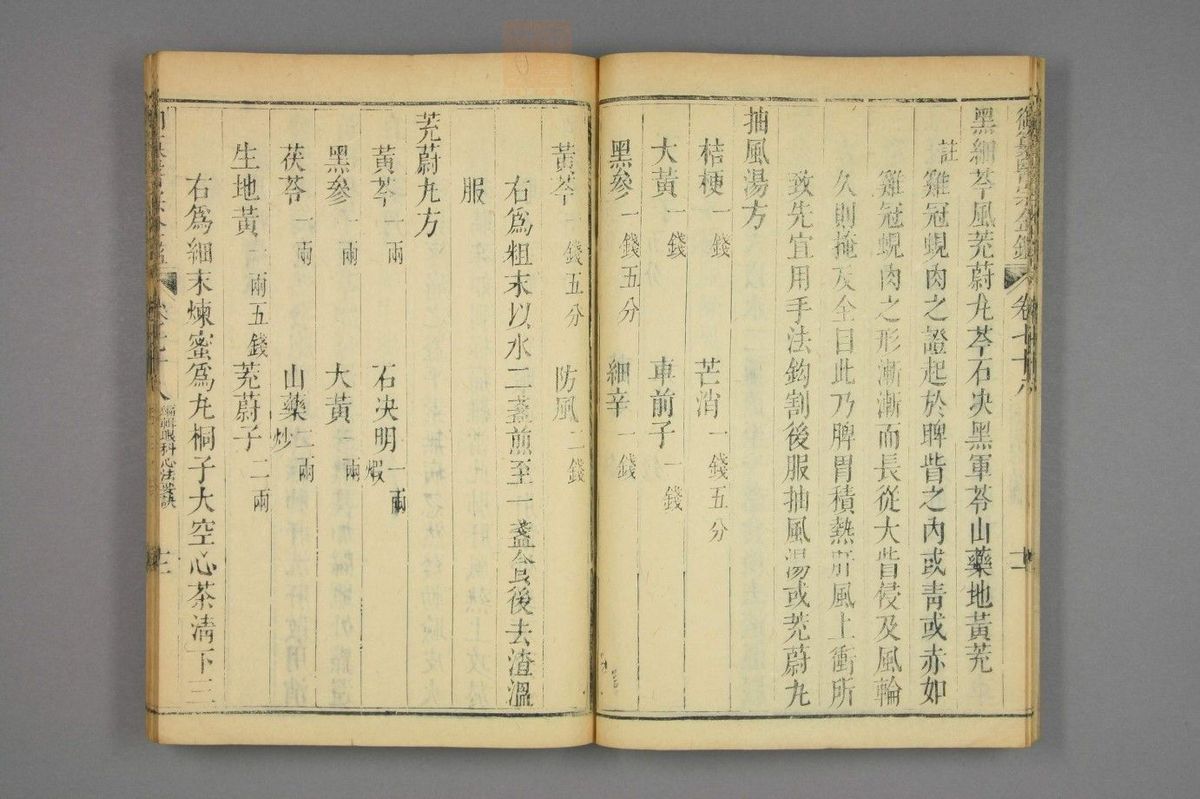 御纂醫宗金鑑 卷七十八
黑細芩風茺蔚丸芩石決黑軍苓山藥地黃茺
註 雞冠蜆肉之證起於睥眥之內或青或赤如
雞冠蜆肉之形漸漸而長從大眥侵及風輪
久則掩及全目此乃脾胃積熱肝風上衝所
致先宜用手法鉤割後服抽風湯或茺蔚丸
抽風湯方
桔梗一錢五分 芒消一錢五分
大黃一錢 車前子一錢
黑參一錢五分 細辛一錢
黃芩一錢五分 防風二錢
右爲粗末以水二盞煎至一盞食後去渣溫
服
茺蔚丸方
黃芩一兩 石決明煆一兩
黑參一兩 大黃一兩
茯苓一兩 山藥炒一兩
生地黃一兩五錢 茺蔚子二兩
右爲細末煉蜜爲丸桐子大空心茶清下三
卷七十八 編輯眼科心法要訣